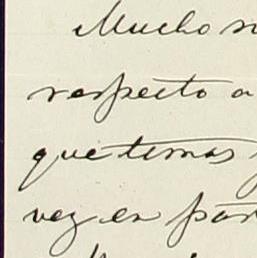 Mucho
respecto a
que temas
vez en par